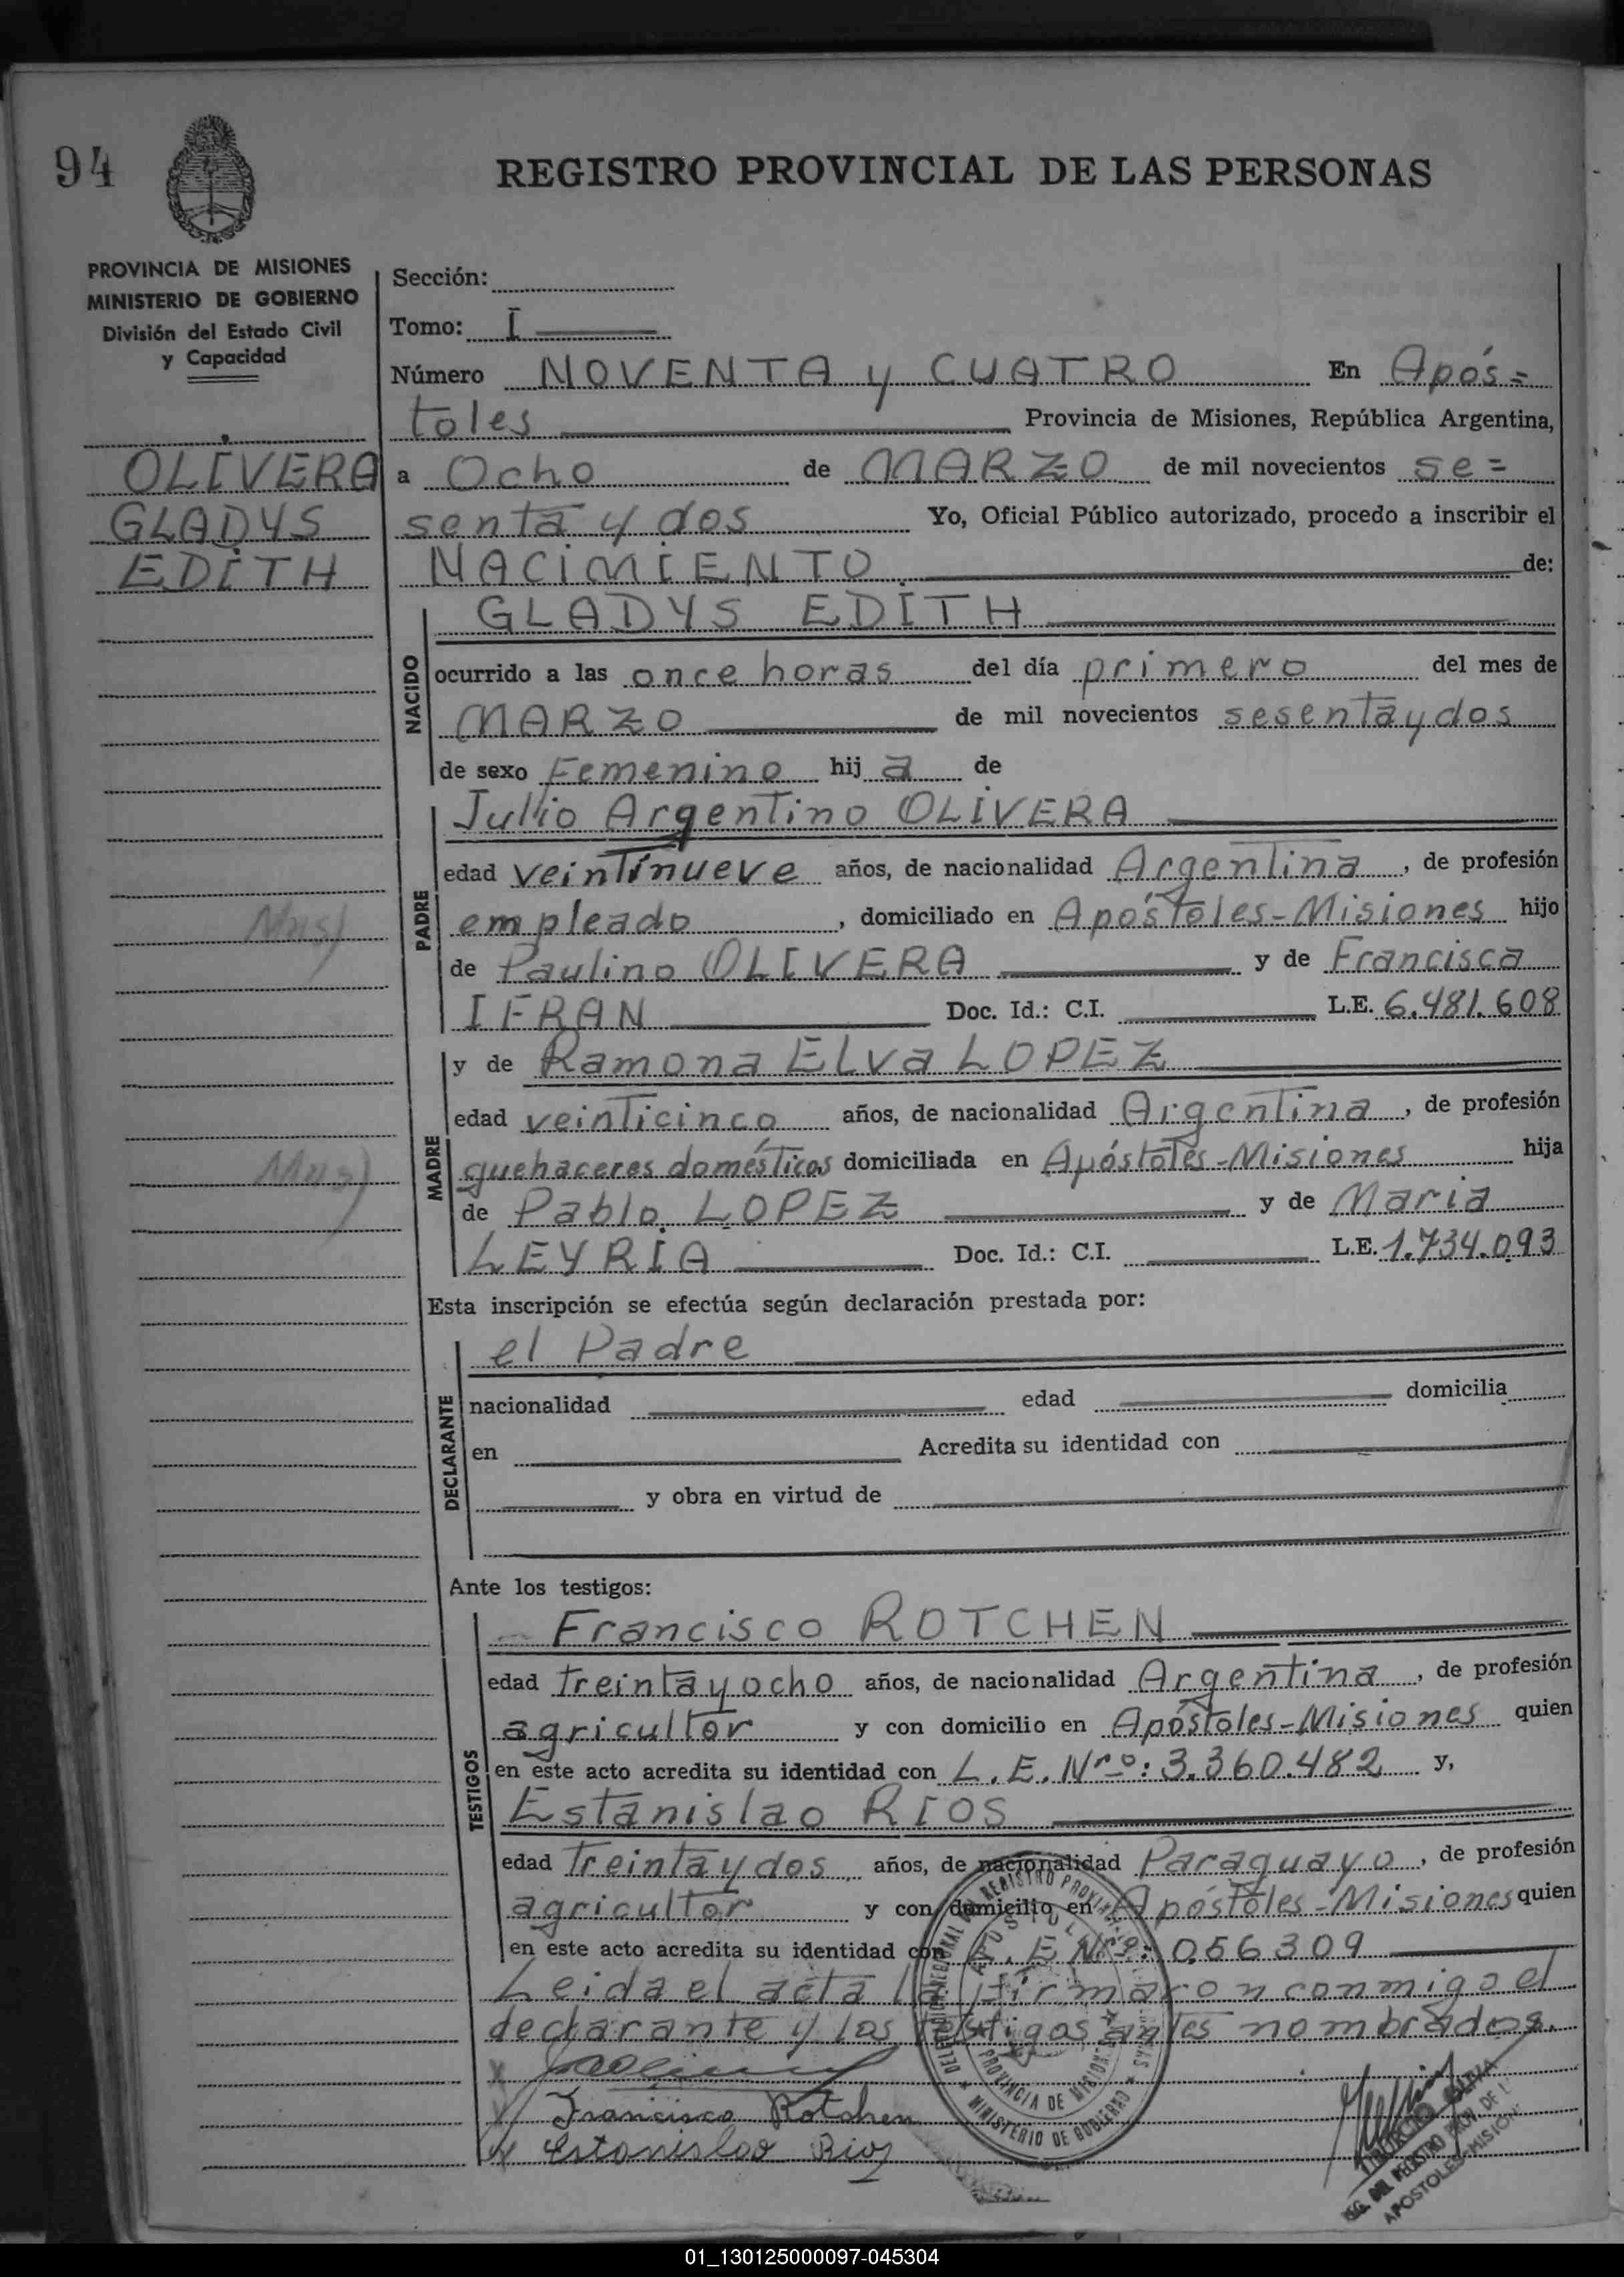 94
REGISTRO PROVINCIAL DE LAS PERSONAS
PROVINCIA DE MISIONES
MINISTERIO DE GOBIERNO
División del Estado Civil
y Capacidad
OLIVERA
GLADYS
EDITH
Sección:
Tomo: I
Número NOVENTA y CUATRO En Após=
toles Provincia de Misiones, República Argentina,
a Ocho de MARZO de mil novecientos se=
senta y dos Yo, Oficial Público autorizado, procedo a inscribir el
NACIMIENTO de:
NACIDO
GLADYS EDITH
ocurrido a las once horas del día primero del mes de
MARZO de mil novecientos sesenta y dos
de sexo Femenino hij a de
PADRE
Jullio Argentino OLIVERA
edad veintinueve años, de nacionalidad Argentina, de profesión
empleado, domiciliado en Apóstoles-Misiones hijo
de Paulino OLIVERA y de Francisca
IFRAN Doc. Id.: C.I. L.E. 6.481.608
MADRE
y de Ramona ELva LOPEZ
edad veinticinco años, de nacionalidad Argentina, de profesión
quehaceres domésticos domiciliada en Apóstoles-Misiones hija
de Pablo LOPEZ y de Maria
LEYRIA Doc. Id.: C.I. L.E. 1.734.093
Esta inscripción se efectúa según declaración prestada por:
DECLARANTE
el Padre
nacionalidad edad domicilia
en Acredita su identidad con
y obra en virtud de
Ante los testigos:
TESTIGOS
Francisco ROTCHEN
edad treinta y ocho años, de nacionalidad Argentina, de profesión
agricultor y con domicilio en Apóstoles-Misiones quien
en este acto acredita su identidad con L.E. Nro: 3.360.482 y,
Estanislao RIOS
edad treinta y dos años, de nacionalidad Paraguayo, de profesión
agricultor y con domicilio en Apóstoles-Misiones quien
en este acto acredita su identidad con .E Nro: 056309
Leida el acta la firmaron conmigo el
declarante y los testigos antes nombrados.
Francisco Rotchen
Estanislao Rios
PROVINCIA DE MISIONES
MINISTERIO DE GOBIERNO
DEL REGISTRO PROV. DE
APOSTOLES-MISION
01_130125000097-045304